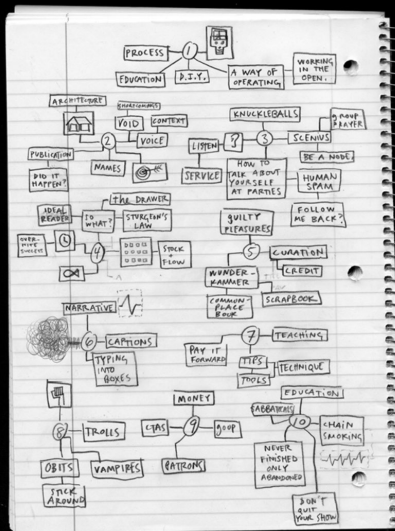 PROCESS
1
EDUCATION
D.I.Y.
A WAY OF
OPERATING
WORKING
IN THE
OPEN.
ARCHITECTURE
VOID
CONTEXT
VOICE
2
PUBLICATION
DID IT
HAPPEN?
NAMES
KNUCKLEBALLS
GROUP
PRAYER
LISTEN
?
3
SCENIUS
BE A NODE.
SERVICE
HOW TO
TALK ABOUT
YOURSELF
AT PARTIES
HUMAN
SPAM
FOLLOW
ME BACK?
IDEAL
READER
the DRAWER
SO
WHAT?
STURGEON'S
LAW
OVER-
NITE
SUCCESS
4
STOCK
+
FLOW
GUILTY
PLEASURES
5
CURATION
CREDIT
WUNDER-
KAMMER
COMMON-
PLACE
BOOK
SCRAPBOOK
NARRATIVE
6
CAPTIONS
TYPING
INTO
BOXES
7
TEACHING
PAY IT
FORWARD
TIPS
TOOLS
TECHNIQUE
8
TROLLS
OBITS
VAMPIRES
STICK
AROUND
MONEY
CTAS
9
GOUP
PATRONS
EDUCATION
SABBATICALS
10
CHAIN
SMOKING
NEVER
FINISHED
ONLY
ABANDONED
DON'T
QUIT
YOUR SHOW